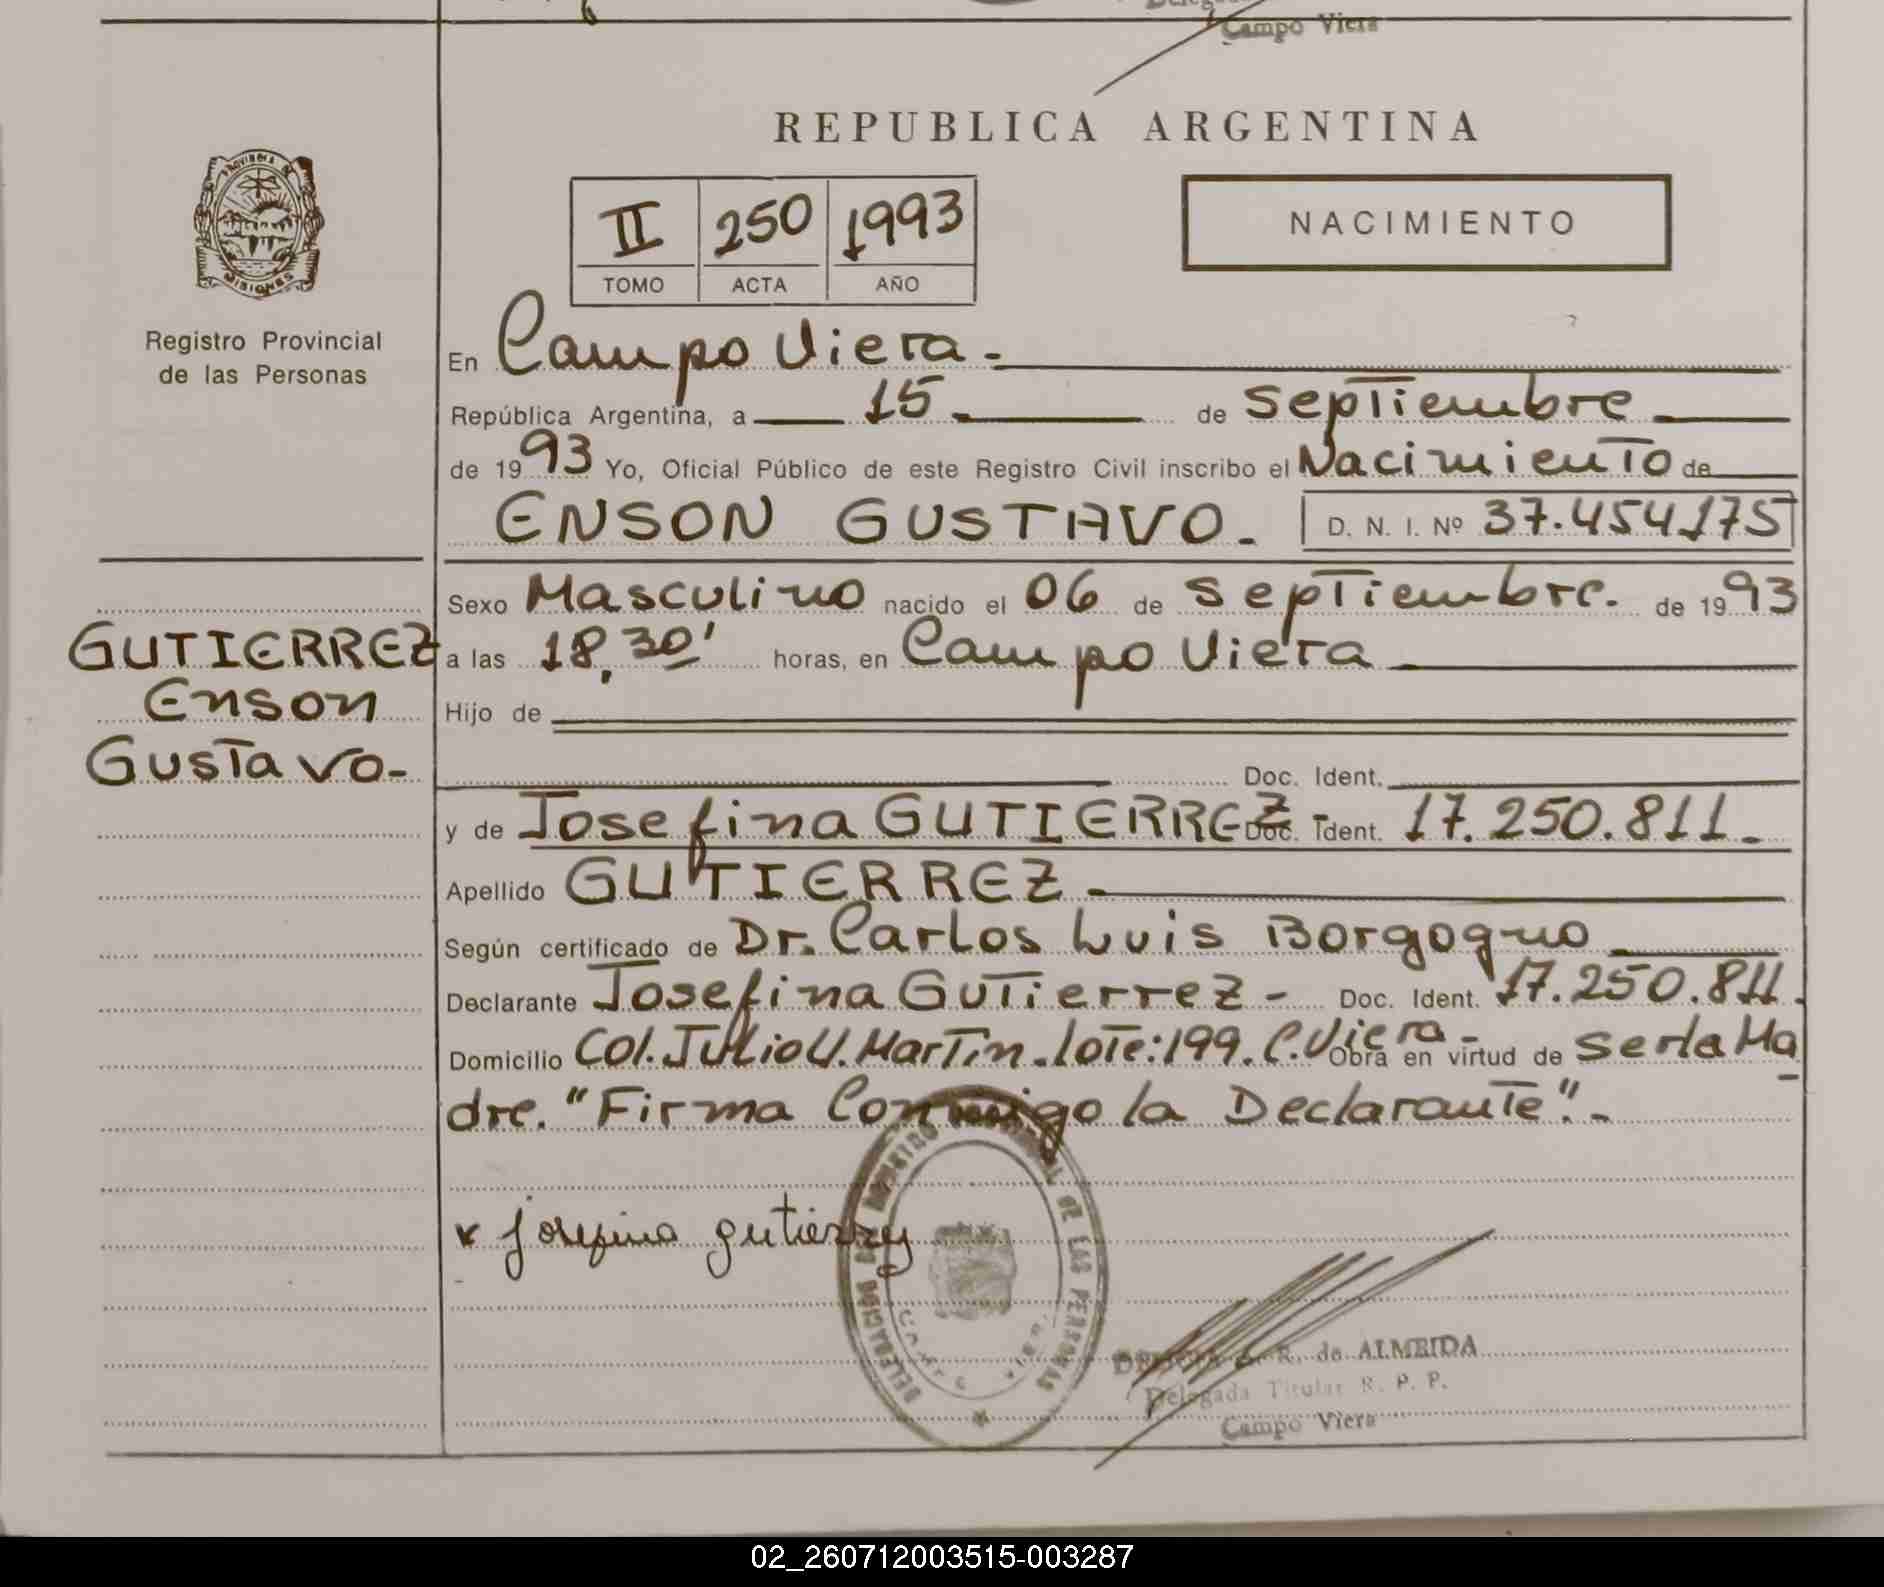 Campo Viera
REPUBLICA ARGENTINA
PROVINCIA DE
MISIONES
Registro Provincial
de las Personas
II 250 1993
TOMO ACTA AÑO
NACIMIENTO
En Campo Viera.-
República Argentina, a 15.- de Septiembre.-
de 1993 Yo, Oficial Público de este Registro Civil inscribo el Nacimiento de
ENSON GUSTAVO.- D. N. I. Nº 37.454175
GUTIERREZ
Enson
Gustavo-
Sexo Masculino nacido el 06 de septiembre. de 1993
a las 18,30' horas, en Campo Viera.-
Hijo de
Doc. Ident.
y de Josefina GUTIERREZ- Doc. Ident. 17.250.811.-
Apellido GUTIERREZ.-
Según certificado de Dr. Carlos Luis Borgogno.-
Declarante Josefina Gutierrez- Doc. Ident. 17.250.811.
Domicilio Col. Julio U. Martin. lote: 199. C. Viera- Obra en virtud de ser la Ma
dre. "Firma Conmigo la Declarante".-
x josefina gutierrez
DELEGACION DEL REGISTRO PROVINCIAL DE LAS PERSONAS
CAMPO VIERA
R. de ALMEIDA
Delegada Titular R. P. P.
Campo Viera
02_260712003515-003287